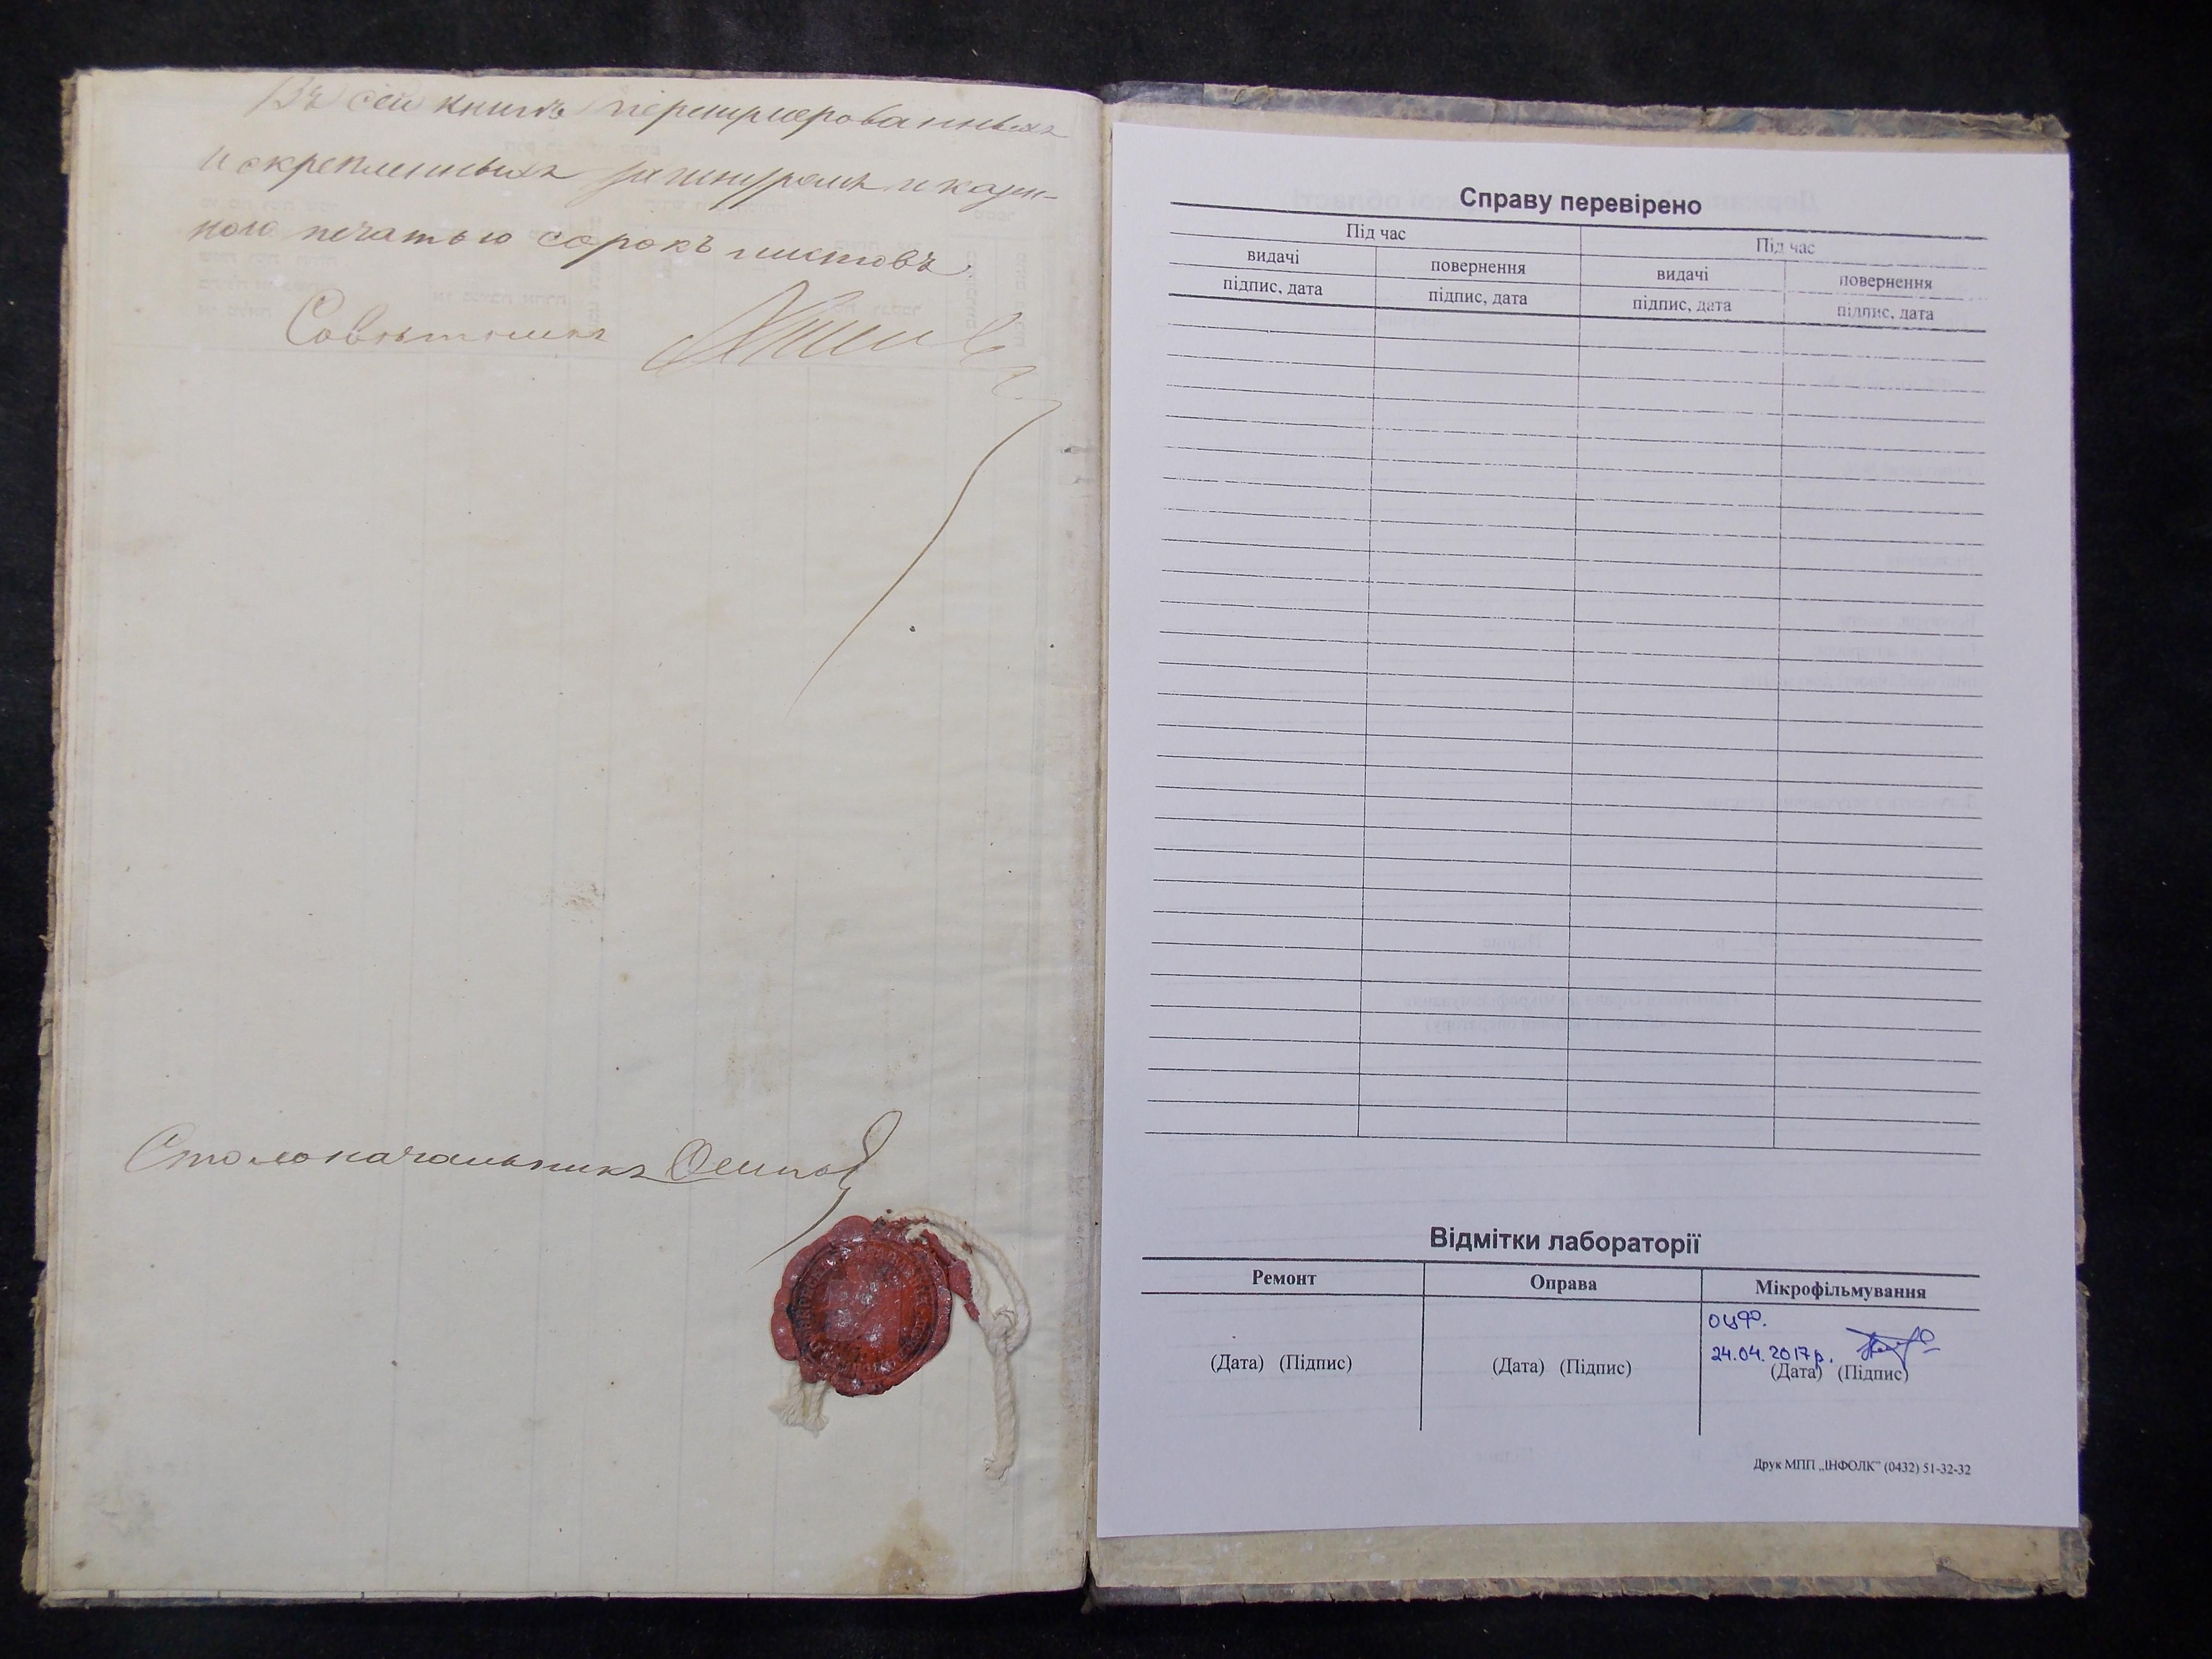 Въ сей книгѣ перенумерованныхъ
и скрепленныхъ за шнуромъ и казен-
ною печатью сорокъ листовъ.
Совѣтникъ
Столоначальникъ Осиповъ
Справу перевірено
Під час Під час
видачі повернення видачі повернення
підпис, дата підпис, дата підпис, дата підпис, дата
Відмітки лабораторії
Ремонт Оправа Мікрофільмування
оцф.
24.04.2017р.
(Дата) (Підпис) (Дата) (Підпис) (Дата) (Підпис)
Друк МПП „ІНФОЛК” (0432) 51-32-32